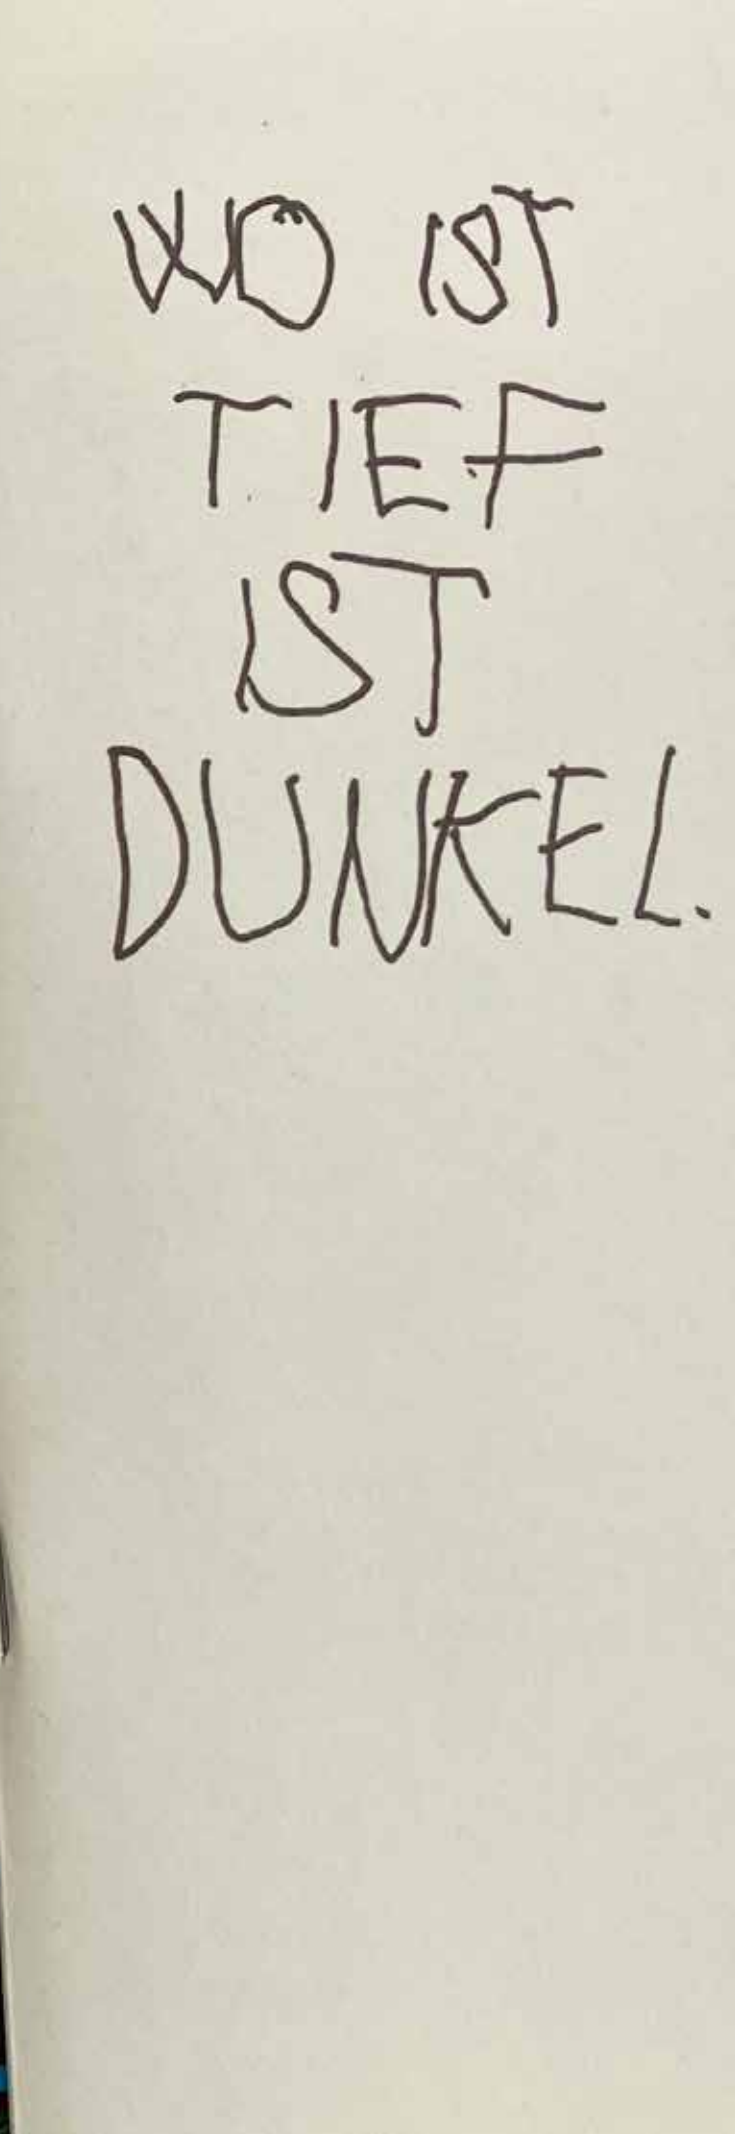 WO IST
TIEF
IST
DUNKEL.